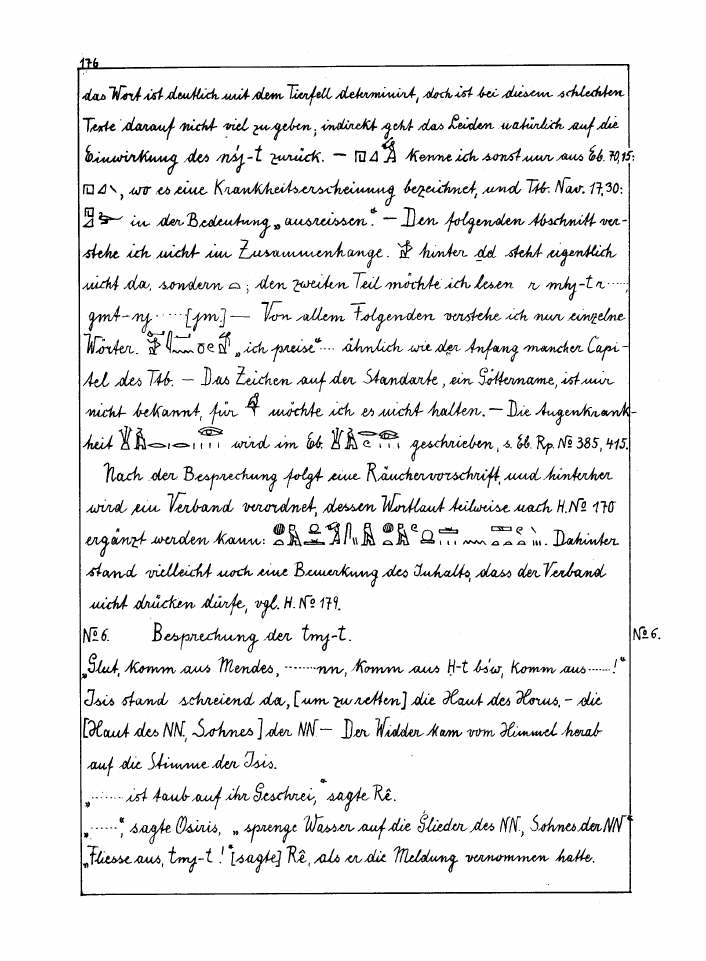 176
das Wort ist deutlich mit dem Tierfell determinirt, doch ist bei diesem schlechten
Texte darauf nicht viel zu geben; indirekt geht das Leiden natürlich auf die
Einwirkung des nśj-t zurück. — kenne ich sonst nur aus Eb. 70,15:
, wo es eine Krankheitserscheinung bezeichnet, und Ttb. Nav. 17,30:
in der Bedeutung „ausreissen." — Den folgenden Abschnitt ver-
stehe ich nicht im Zusammenhange. hinter dd steht eigentlich
nicht da, sondern ; den zweiten Teil möchte ich lesen r mhj-t r ·····,
gmt-nj ····· [jm.] — Von allem Folgenden verstehe ich nur einzelne
Wörter. „ich preise"···· ähnlich wie der Anfang mancher Capi-
tel des Ttb. — Das Zeichen auf der Standarte, ein Göttername, ist mir
nicht bekannt, für möchte ich es nicht halten. — Die Augenkrank-
heit wird im Eb. geschrieben, s. Eb. Rp. No 385, 415.
Nach der Besprechung folgt eine Räuchervorschrift, und hinterher
wird ein Verband verordnet, dessen Wortlaut teilweise nach H. No 170
ergänzt werden kann: . Dahinter
stand vielleicht noch eine Bemerkung des Inhalts, dass der Verband
nicht drücken dürfe, vgl. H. No 179.
No 6. Besprechung der tmj-t. No 6.
„Glut, komm aus Mendes, ········nn, komm aus H-t bśw, komm aus ······!"
Isis stand schreiend da, [um zu retten] die Haut des Horus, – die
[Haut des NN, Sohnes] der NN — Der Widder kam vom Himmel herab
auf die Stimme der Isis.
„······· ist taub auf ihr Geschrei," sagte Rê.
„······", sagte Osiris, „sprenge Wasser auf die Glieder des NN, Sohnes der NN"
„Fliesse aus, tmj-t!" [sagte] Rê, als er die Meldung vernommen hatte.